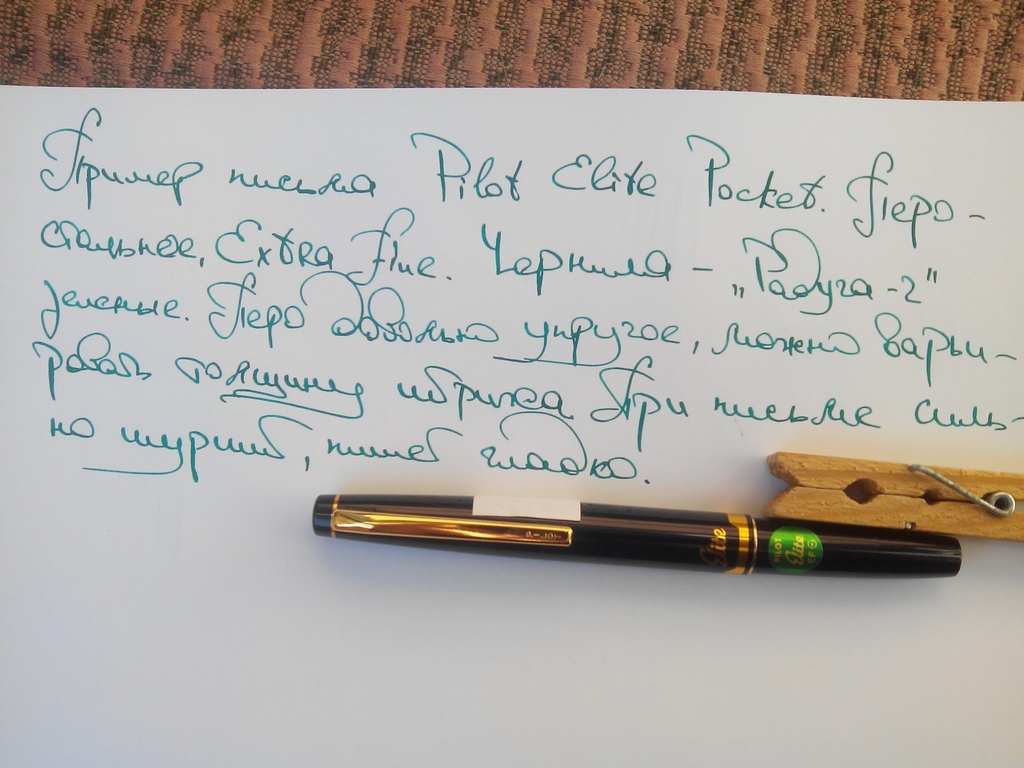 Пример письма Pilot Elite Pocket. Перо -
стальное, Extra Fine. Чернила - „Радуга-2"
зеленые. Перо довольно упругое, можно варьи-
ровать толщину штриха. При письме силь-
но шуршит, пишет гладко.
Elite
PILOT
Elite